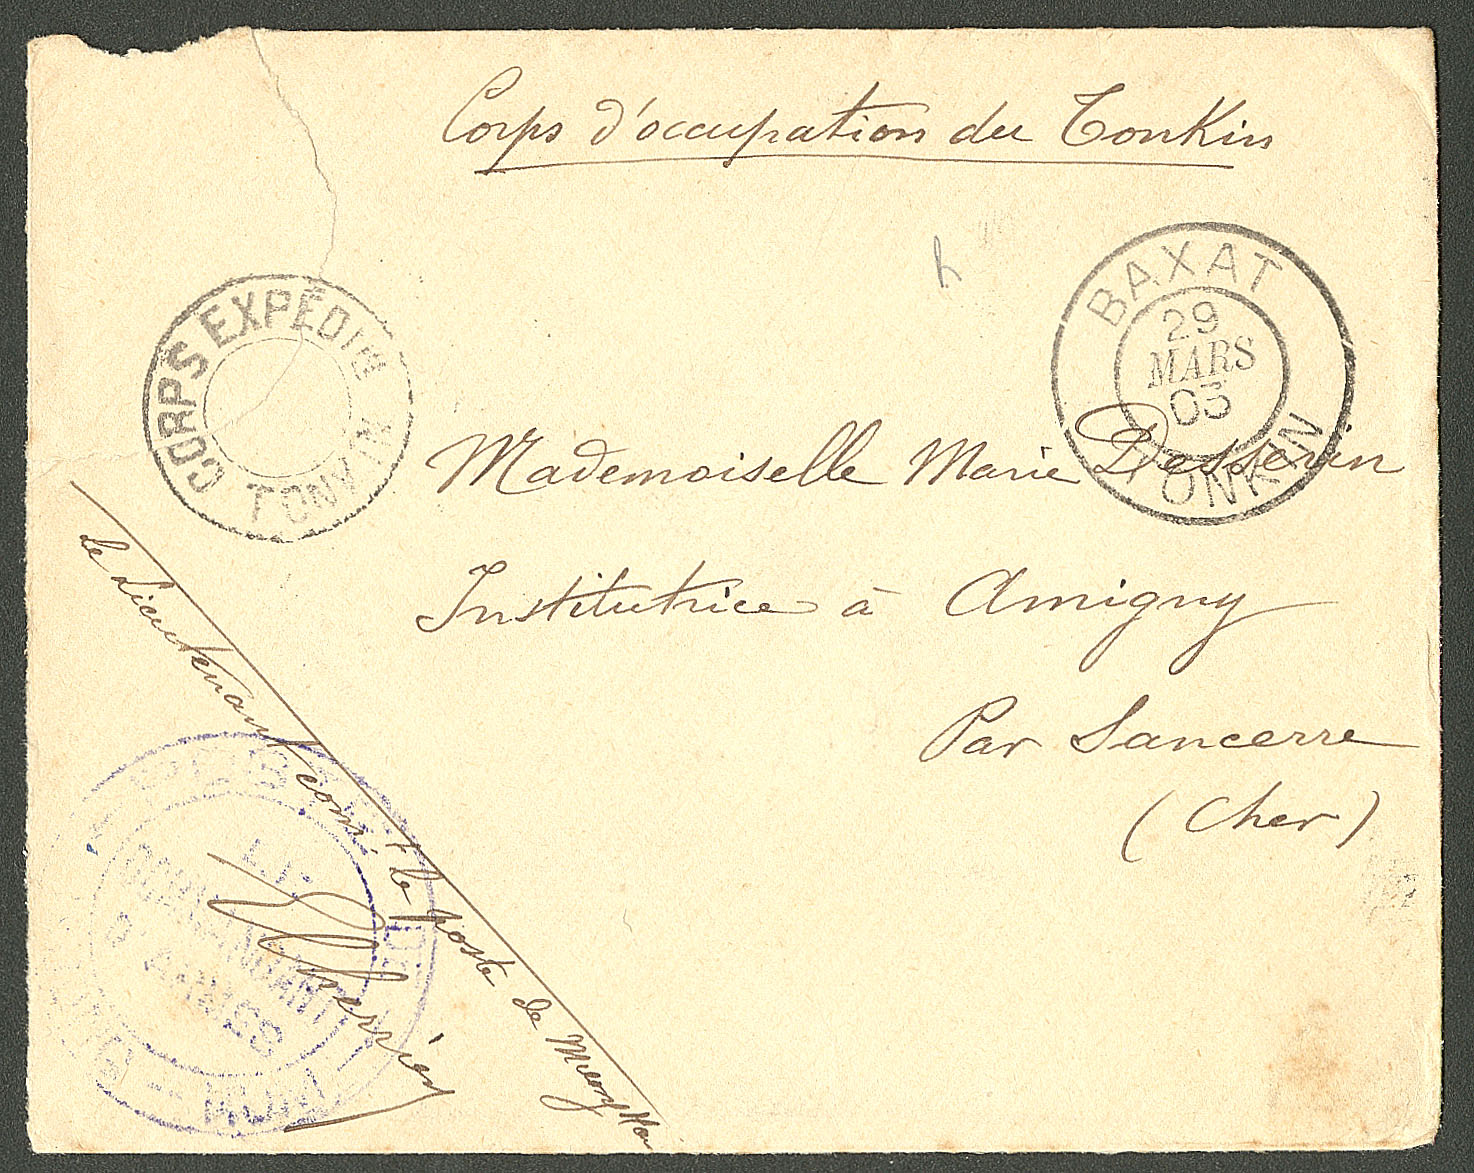 Corps d'occupation du Tonkin
BAXAT
29
MARS
03
TONKIN
CORPS EXPÉDIre
TONKIN
Mademoiselle Marie Desserin
Institutrice à Amigny
Par Sancerre
(Cher)
le Lieutenant comt le poste de Muong Hou
LT
COMMANDANT
D'ARMES